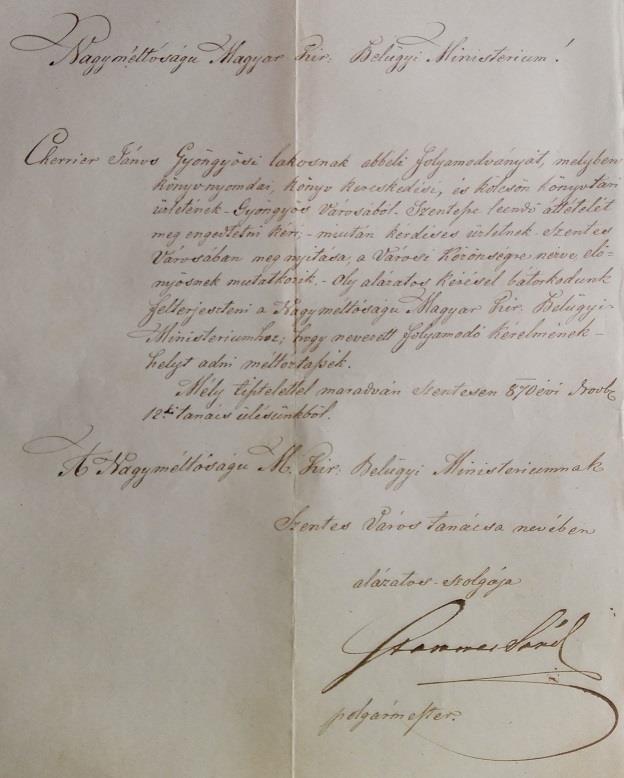 Nagyméltóságu Magyar Kir: Belügyi Ministerium!
Cherrier János Gyöngyösi lakosnak abbeli folyamodványát, melyben
könyvnyomdai, könyv kereskedési, és kölcsön könyvtári
üzletének - Gyöngyös Városából - Szentesre leendő áttételét
meg engedtetni kéri, - miután kérdéses üzletnek - Szentes
Városában meg nyitása, a Városi Közönségre nézve elő=
nyösnek mutatkozik. - Oly alázatos kéréssel bátorkodunk
felterjeszteni a Nagyméltóságu Magyar Kir: Belügyi
Ministeriumhoz; hogy nevezett folyamodó kérelmének -
helyt adni méltóztassék.
Mély tisztelettel maradván Szentesen 870 évi Novbr
12én tanács ülésünkből.
A Nagyméltóságu M. Kir: Belügyi Ministeriumnak
Szentes Város tanácsa nevében
alázatos szolgája
polgármester.